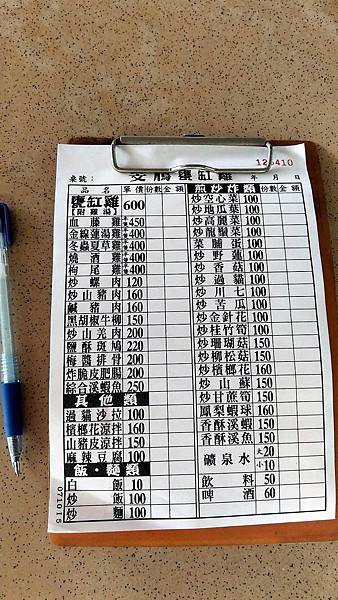 甕缸雞
126410
桌號：
年 月 日
品 名 單價 份數 金 額
甕缸雞
【附雞湯】 600
血藤雞 450
金線蓮湯雞 400
冬蟲夏草雞 400
燒酒雞 400
枸尾雞 400
炒螺肉 120
炒山豬肉 160
鹹豬肉 160
黑胡椒牛柳 150
炒山羌肉 200
鹽酥斑鳩 220
梅醬排骨 200
炸脆皮肥腸 200
綜合溪蝦魚 250
其他類
過貓沙拉 100
檳榔花涼拌 160
山豬皮涼拌 150
麻辣豆腐 100
飯．麵類
白飯 10
炒飯 100
炒麵 100
煎炒炸類 份數 金 額
炒空心菜 100
炒地瓜葉 100
炒高麗菜 100
炒龍鬚菜 100
菜脯蛋 100
炒野蓮 100
炒香菇 100
炒過貓 100
炒川七 100
炒苦瓜 100
炒金針花 100
炒桂竹筍 100
炒珊瑚菇 150
炒柳松菇 150
炒檳榔花 160
炒山蘇 150
炒甘蔗筍 150
鳳梨蝦球 160
香酥溪蝦 150
香酥溪魚 150
礦泉水 大20
小10
飲料 50
啤酒 60
071015